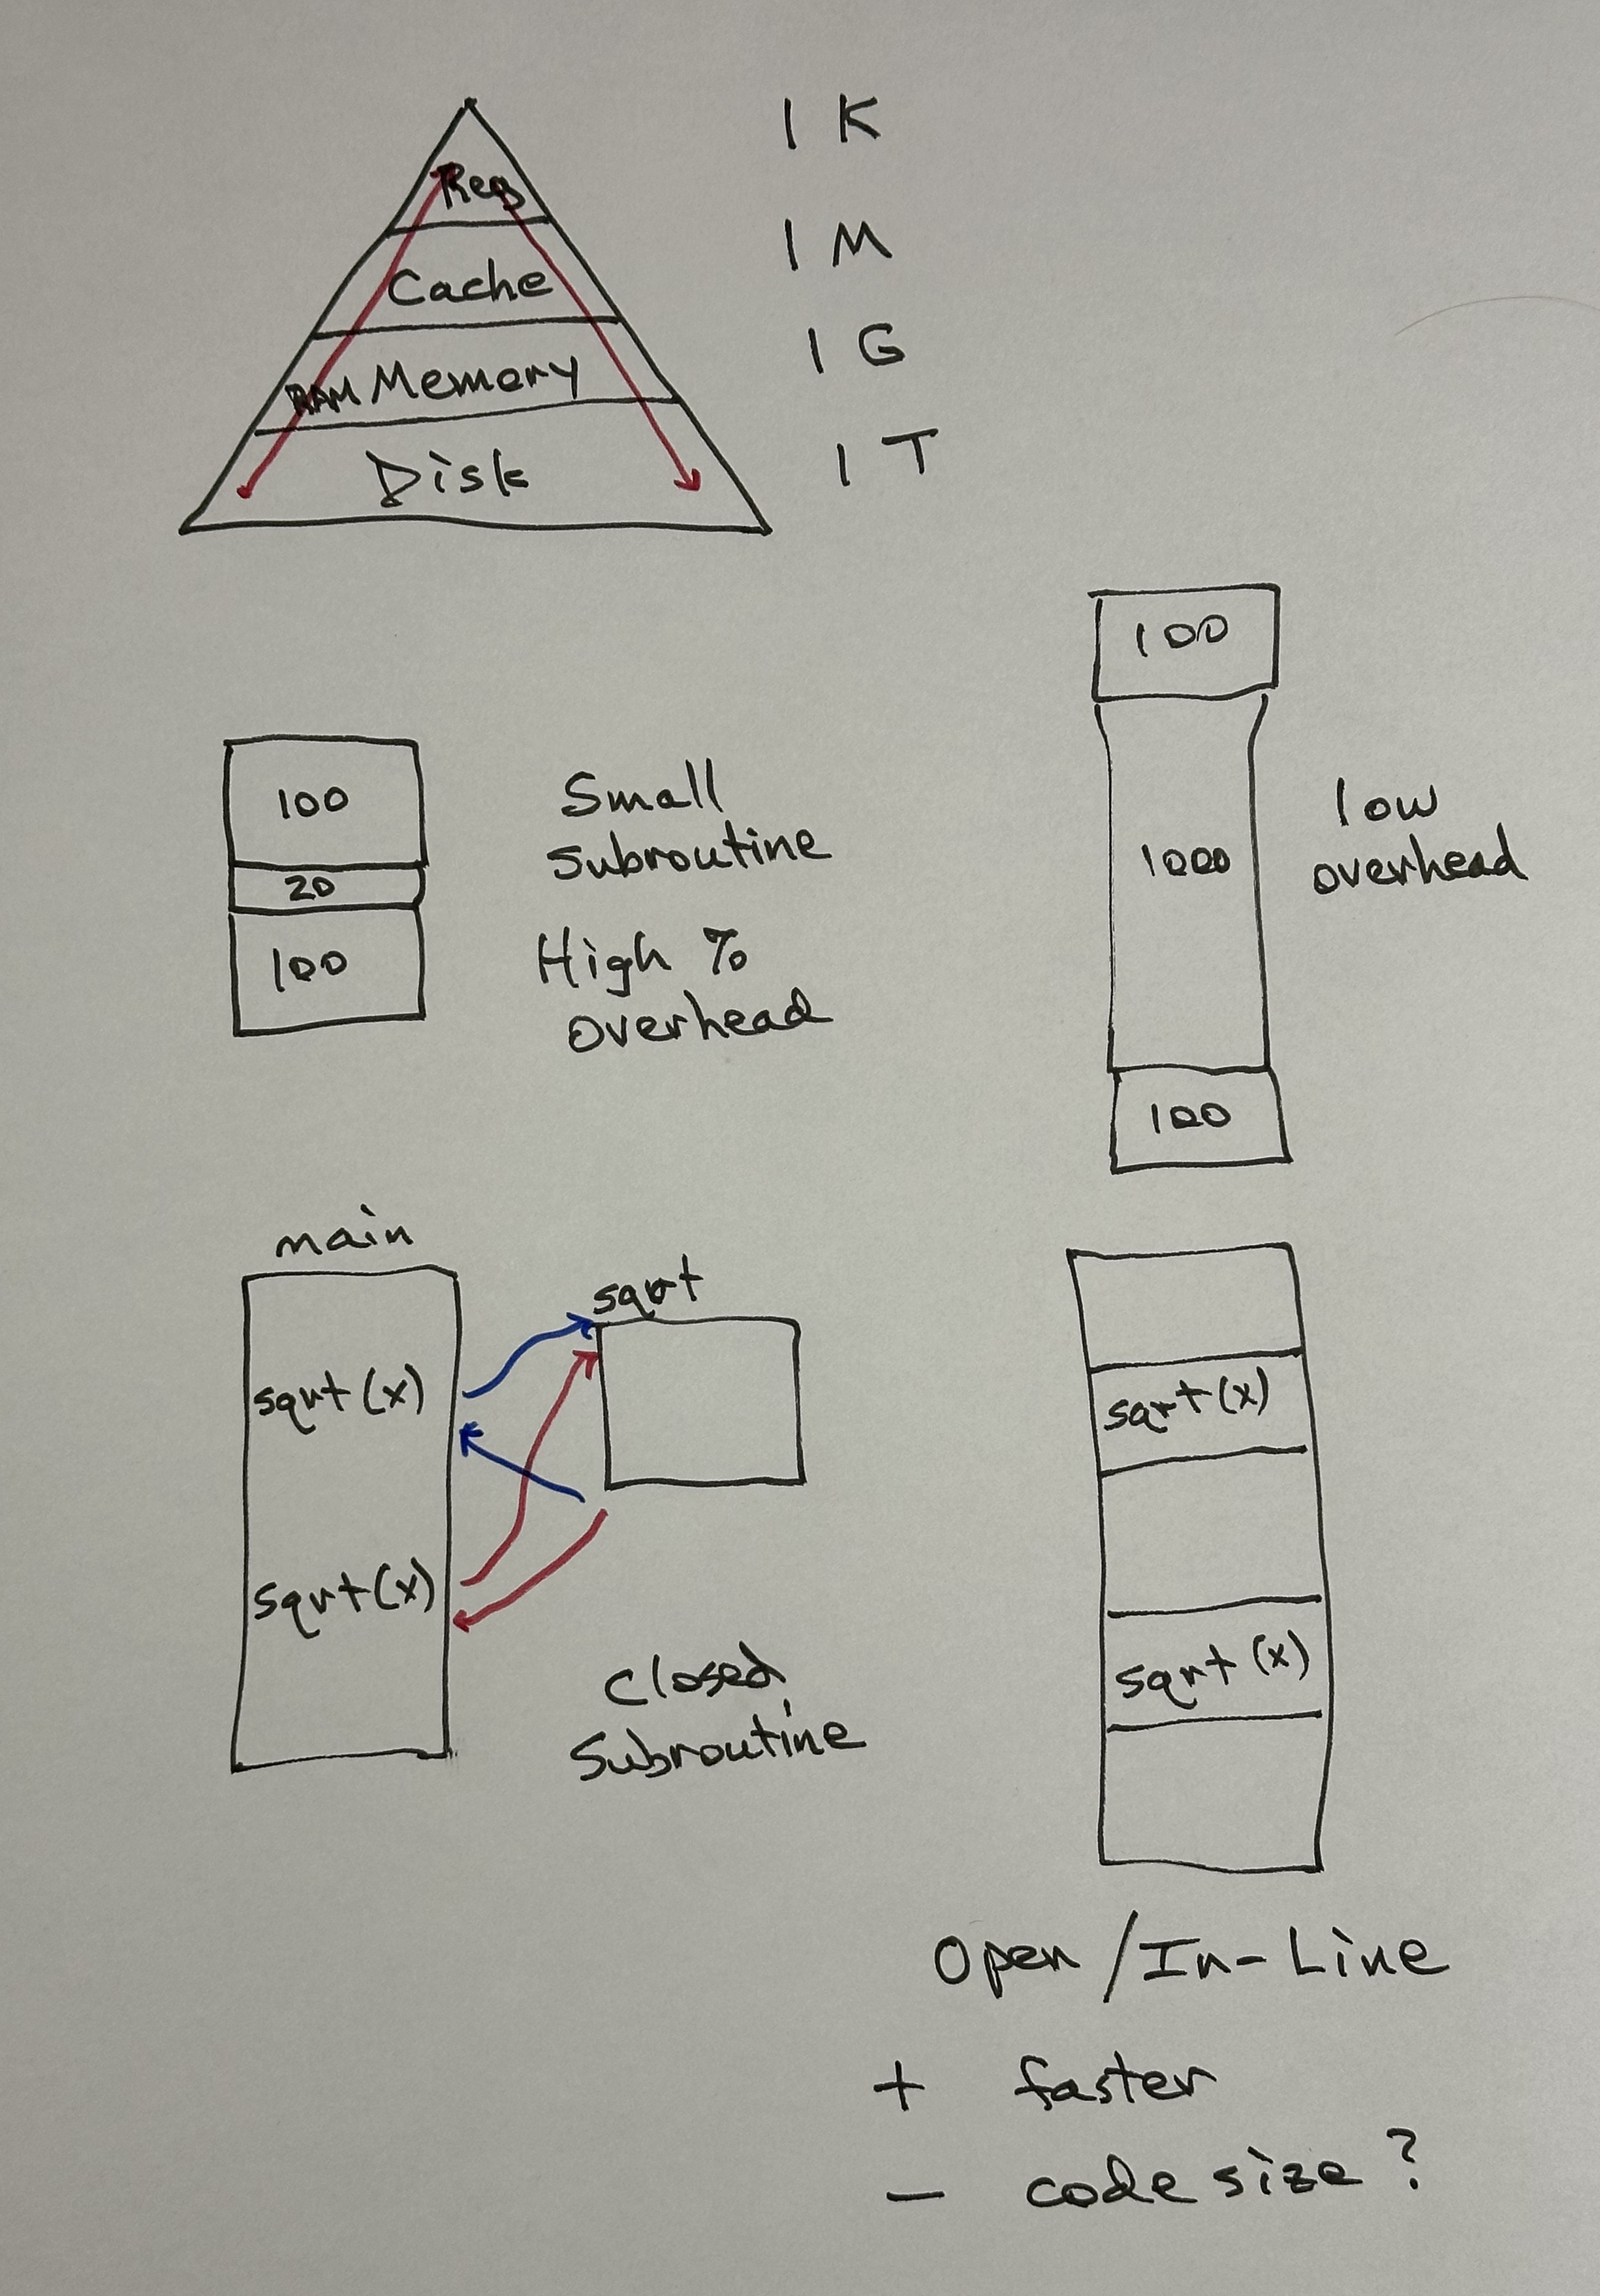 Reg
1 K
Cache
1 M
RAM Memory
1 G
Disk
1 T
100
20
100
Small
subroutine
High %
overhead
100
1000
100
low
overhead
main
sqrt (x)
sqrt (x)
sqrt
Closed
Subroutine
sqrt (x)
sqrt (x)
Open / In-Line
+ faster
- code size ?